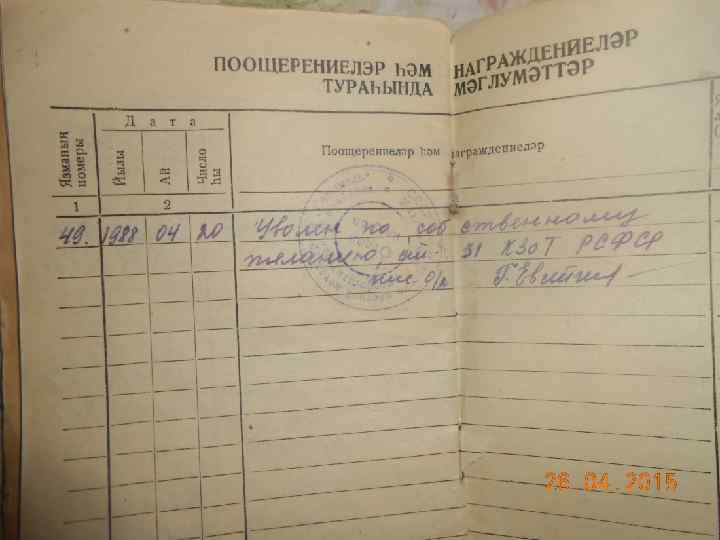 ПООЩЕРЕНИЕЛӘР ҺӘМ НАГРАЖДЕНИЕЛӘР
ТУРАҺЫНДА МӘГЛУМӘТТӘР
Язманың номеры
Дата
Йылы
Ай
Число һы
Поощерениеләр һәм награждениеләр
1
2
49. 1988 04 20 Уволен по собственному
желанию, ст. 31 КЗоТ РСФСР
26 04 2015